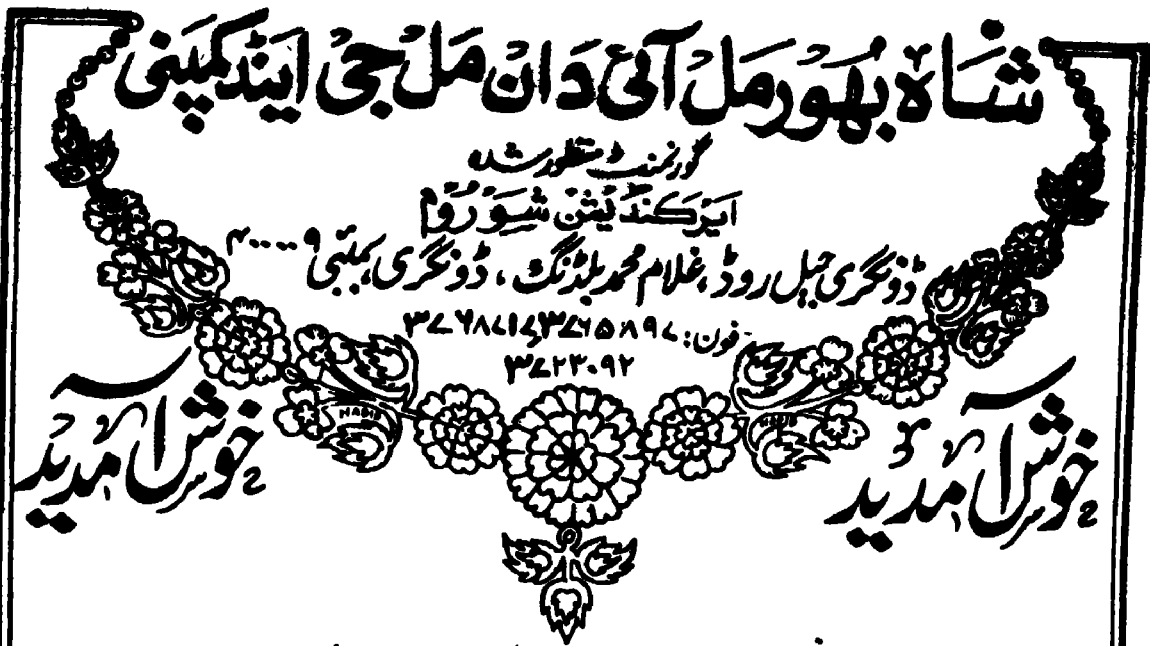 شاہ بھورمل آئی دان مل جی اینڈ کمپنی
گورنمنٹ منظور شدہ
ایرکنڈیشن شوروم
ڈونگری جیل روڈ، غلام محمد بلڈنگ، ڈونگری، بمبئی ۴۰۰۰۰۹
فون: ۳۷۶۵۸۹۷ , ۳۷۶۸۷۱۷
۳۷۲۳۰۹۲
خوش آمدید
خوش آمدید
HABIB
HABIB